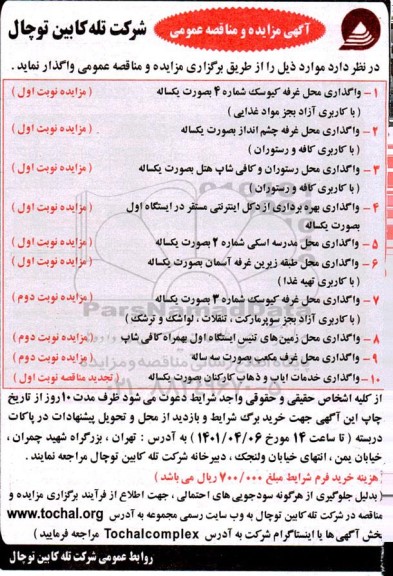 آگهی مزایده و مناقصه عمومی
شرکت تله کابین توچال
در نظر دارد موارد ذیل را از طریق برگزاری مزایده و مناقصه عمومی واگذار نماید .
۱ - واگذاری محل غرفه کیوسک شماره ۴ بصورت یکساله ( مزایده نوبت اول )
( با کاربری آزاد بجز مواد غذایی )
۲ - واگذاری محل غرفه چشم انداز بصورت یکساله ( مزایده نوبت اول )
( با کاربری کافه و رستوران )
۳ - واگذاری محل رستوران و کافی شاپ هتل بصورت یکساله ( مزایده نوبت اول )
( با کاربری کافه و رستوران )
۴ - واگذاری بهره برداری از دکل اینترنتی مستقر در ایستگاه اول ( مزایده نوبت اول )
بصورت یکساله
۵ - واگذاری محل مدرسه اسکی شماره ۲ بصورت یکساله ( مزایده نوبت اول )
۶ - واگذاری محل طبقه زیرین غرفه آسمان بصورت یکساله ( مزایده نوبت اول )
( با کاربری تهیه غذا )
۷ - واگذاری محل غرفه کیوسک شماره ۳ بصورت یکساله ( مزایده نوبت دوم )
( با کاربری آزاد بجز سوپرمارکت ، تنقلات ، لواشک و ترشک )
۸ - واگذاری محل زمین های تنیس ایستگاه اول بهمراه کافی شاپ ( مزایده نوبت دوم )
۹ - واگذاری محل غرف مکعب بصورت سه ساله ( مزایده نوبت دوم )
۱۰ - واگذاری خدمات ایاب و ذهاب کارکنان بصورت یکساله ( تجدید مناقصه نوبت اول )
از کلیه اشخاص حقیقی و حقوقی واجد شرایط دعوت می شود ظرف مدت ۱۰ روز از تاریخ
چاپ این آگهی جهت خرید برگ شرایط و بازدید از محل و تحویل پیشنهادات در پاکات
دربسته ( تا ساعت ۱۴ مورخ ۱۴۰۱/۰۴/۰۶ ) به آدرس : تهران ، بزرگراه شهید چمران ،
خیابان یمن ، انتهای خیابان ولنجک ، دبیرخانه شرکت تله کابین توچال مراجعه نمایند .
( هزینه خرید فرم شرایط مبلغ ۷۰۰/۰۰۰ ریال می باشد )
( بدلیل جلوگیری از هرگونه سودجویی های احتمالی ، جهت اطلاع از فرآیند برگزاری مزایده و
مناقصه در شرکت تله کابین توچال به وب سایت رسمی مجموعه به آدرس www.tochal.org
بخش آگهی ها یا اینستاگرام شرکت به آدرس Tochalcomplex مراجعه فرمایید )
روابط عمومی شرکت تله کابین توچال